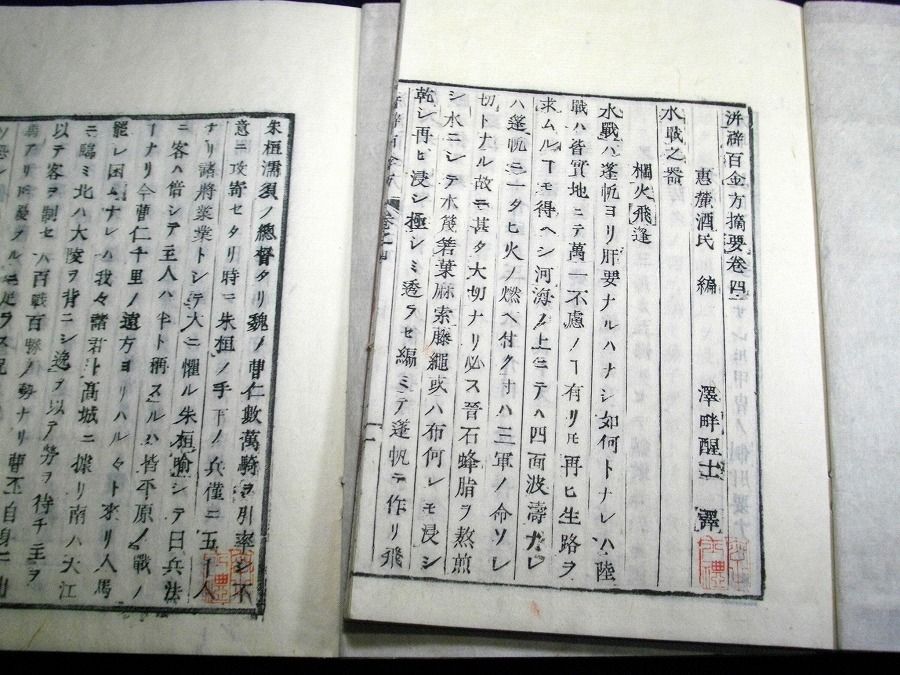 洴澼百金方摘要卷四
惠麓酒民 編 澤畔醒士 譯
水戰之器
火飛逢
水戰ハ蓬帆ヨリ肝要ナルハナシ如何トナレハ陸
戰ハ皆實地ニテ萬一不慮ノヿ有リ𪜈再ヒ生路ヲ
求ムルヿモ得ヘシ河海ノ上ニテハ四面波濤ナレ
ハ蓬帆ニ一タヒ火ノ燃ヘ付クキハ三軍ノ命ソレ
切トナル故ニ甚タ大切ナリ必ス晉石蜂脂ヲ熬煎
シ水ニシテ木筏箬葉麻索藤繩或ハ布何レモ浸シ
乾シ再ヒ浸シ極シミ透ラセ編ミテ蓬帆ニ作リ飛
朱桓濡須ノ總督タリ魏ノ曹仁數萬騎ヲ引率シ不
意ニ攻寄セタリ時ニ朱桓ノ手下ノ兵僅ニ五千人
ナリ諸將業業トシテ大ニ懼ル朱桓喻シテ曰兵法
ニ客ハ倍シテ主人ハ半ト稱スルハ皆平原ノ戰ノ
ヿナリ今曹仁千里ノ遠方ヨリハル々ト來リ人馬
罷レ困ムナレハ我々諸君ト高城ニ據リ南ハ大江
ニ臨ミ北ハ大陵ヲ背ニシ逸ヲ以テ勞ヲ待チ主ヲ
以テ客ヲ制セハ百戰百勝ノ勢ナリ曹丕自